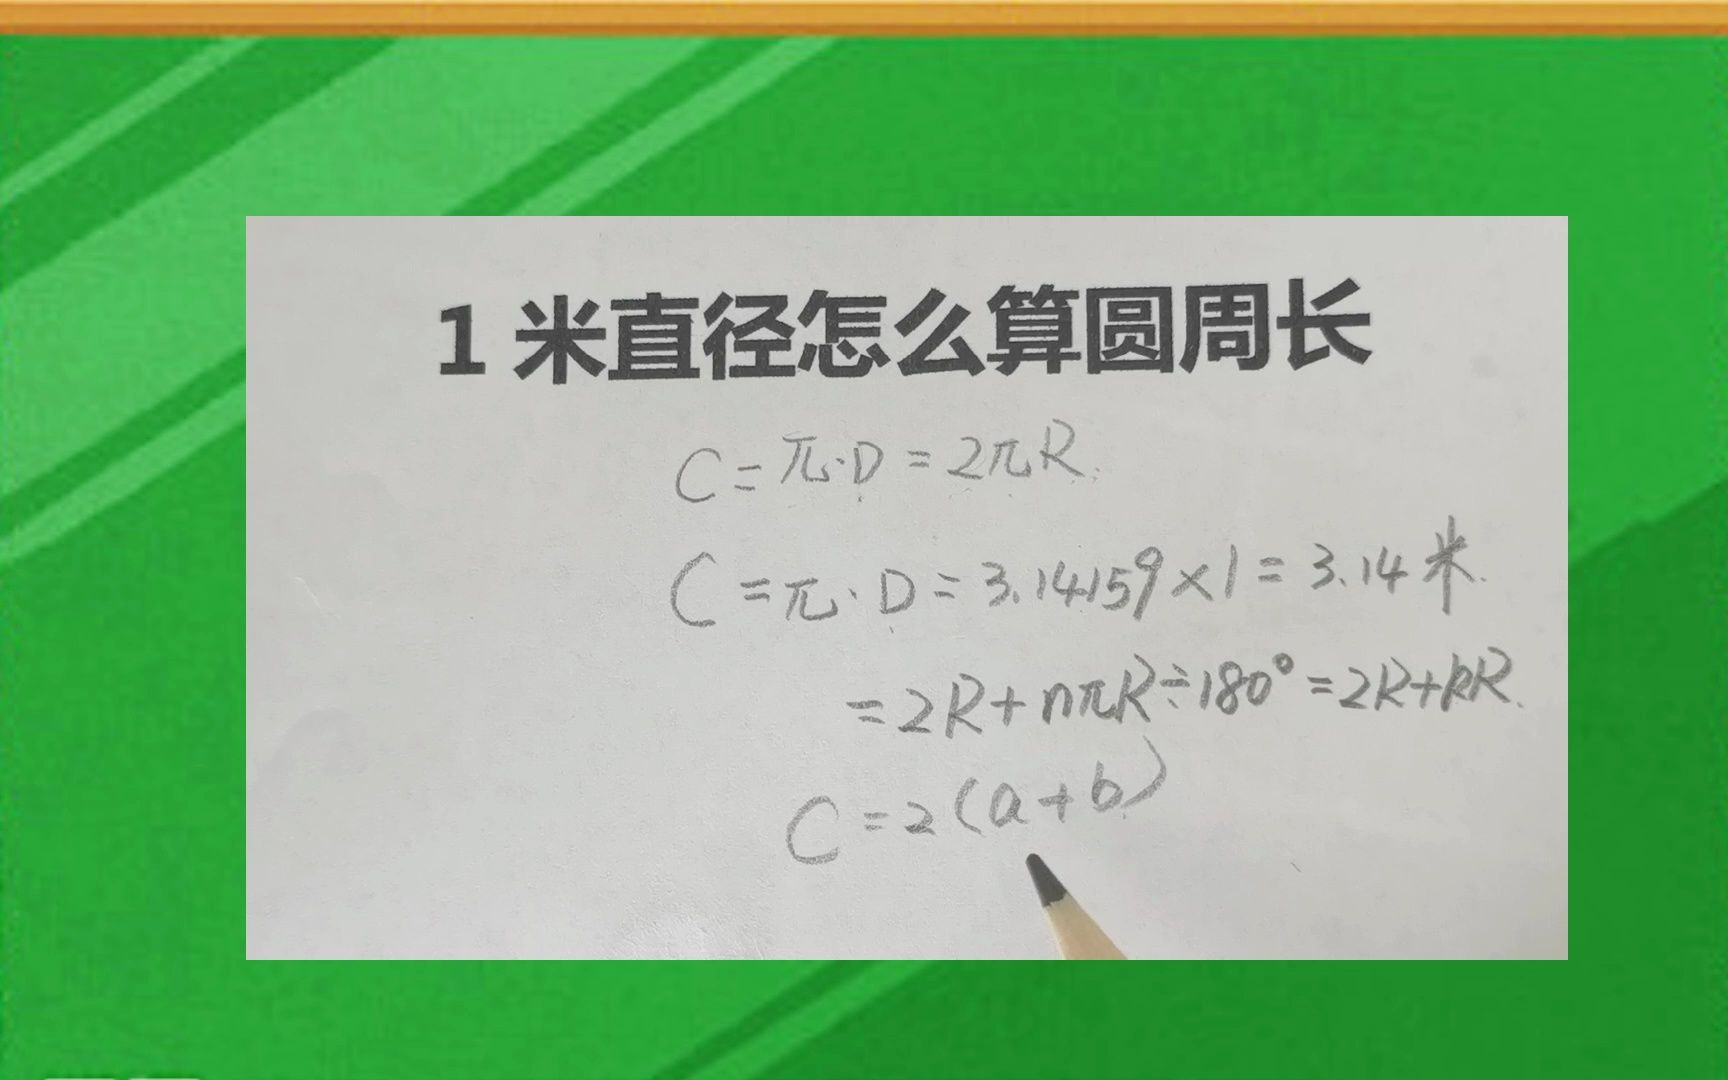 1米直径怎么算圆周长
C=π·D=2πR.
C=π·D=3.14159×1=3.14米.
=2R+nπR÷180°=2R+kR.
C=2(a+b)